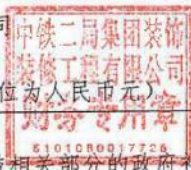 司
中铁二局集团装饰
装修工程有限公司
位为人民币元)
财务专用章
5101080017726
相关部分的政府